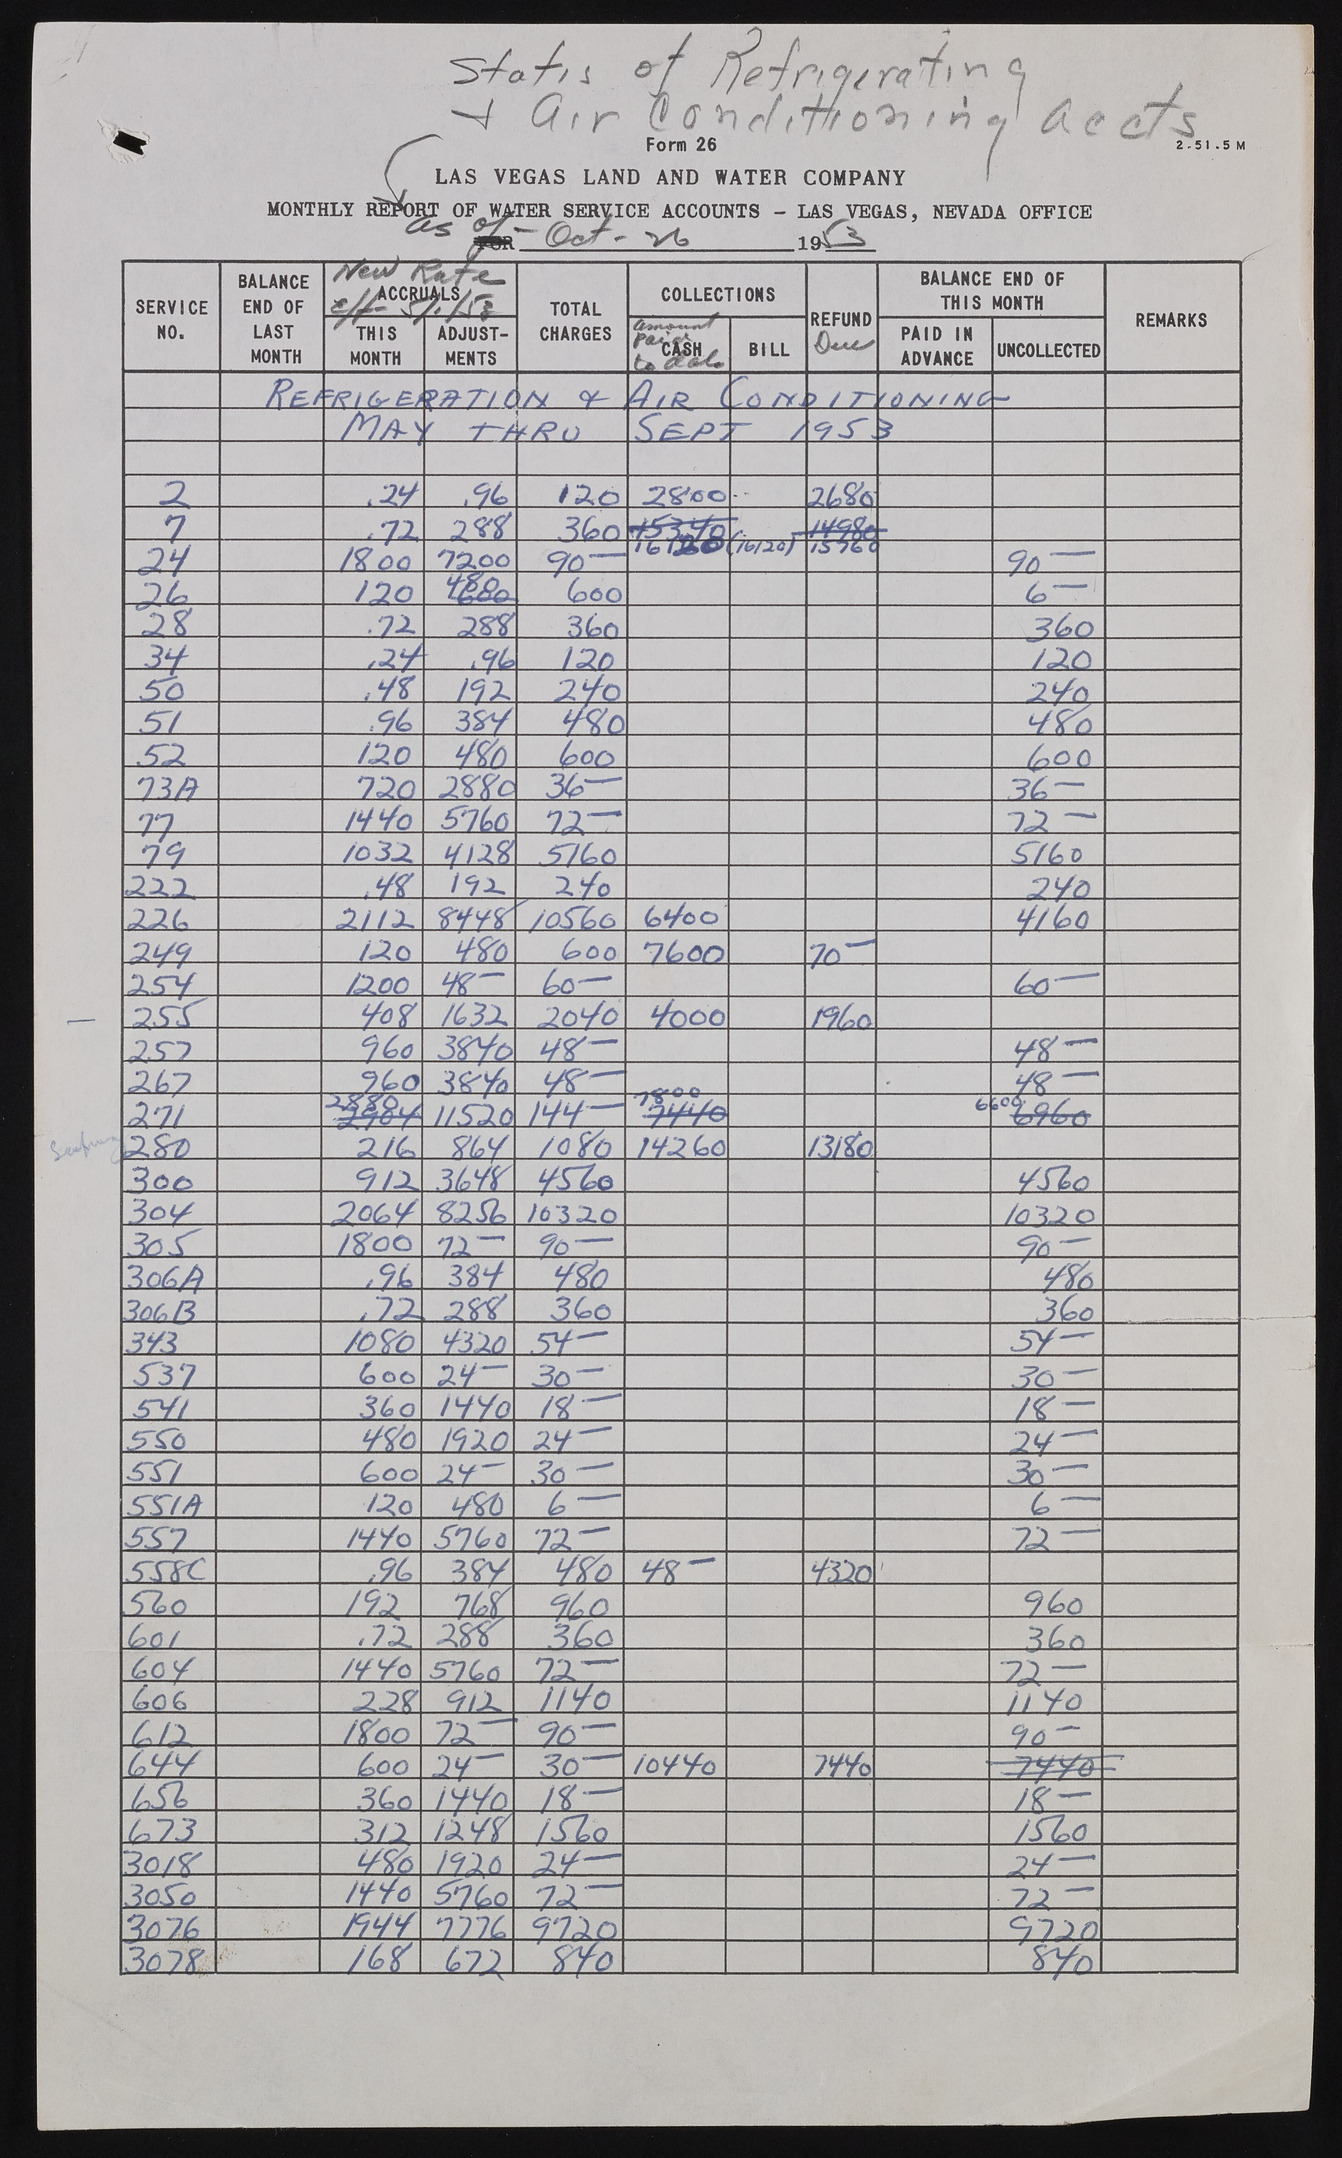 Status of Refrigerating
& Air Conditioning accts
Form 26
2-51.5M
LAS VEGAS LAND AND WATER COMPANY
MONTHLY REPORT OF WATER SERVICE ACCOUNTS - LAS VEGAS, NEVADA OFFICE
as of - Oct - 26 1953
SERVICE NO. BALANCE END OF LAST MONTH New Rate eff- 5/1/53 ACCRUALS THIS MONTH ADJUSTMENTS TOTAL CHARGES COLLECTIONS amount paid to date CASH BILL REFUND Due BALANCE END OF THIS MONTH PAID IN ADVANCE UNCOLLECTED REMARKS
REFRIGERATION & AIR CONDITIONING
MAY THRU SEPT 1953
2 .24 .96 120 2800 2680
7 .72 288 360 15340 14980
16120 (16120) 15760
24 1800 7200 90— 90—
26 120 480 600 600 6—
28 .72 288 360 360
34 .24 .96 120 120
50 .48 192 240 240
51 .96 384 480 480
52 120 480 600 600
73A 720 2880 36— 36—
77 1440 5760 72— 72—
79 1032 4128 5160 5160
222 .48 192 240 240
226 2112 8448 10560 6400 4160
249 120 480 600 7600 70—
254 1200 48— 60— 60—
255 408 1632 2040 4000 1960
257 960 3840 48— 48—
267 960 3840 48— 48—
271 2880 2904 11520 144— 7800 7440 6600 6960
280 216 864 1080 14260 13180
300 912 3648 4560 4560
304 2064 8256 10320 10320
305 1800 72— 90— 90—
306A .96 384 480 480
306B .72 288 360 360
343 1080 4320 54— 54—
537 600 24— 30— 30—
541 360 1440 18— 18—
550 480 1920 24— 24—
551 600 24— 30— 30—
551A 120 480 6— 6—
557 1440 5760 72— 72—
558C .96 384 480 48— 4320
560 192 768 960 960
601 .72 288 360 360
604 1440 5760 72— 72—
606 228 912 1140 1140
612 1800 72— 90— 90—
644 600 24— 30— 10440 7440 7440
656 360 1440 18— 18—
673 312 1248 1560 1560
3018 480 1920 24— 24—
3050 1440 5760 72— 72—
3076 1944 7776 9720 9720
3078 168 672 840 840